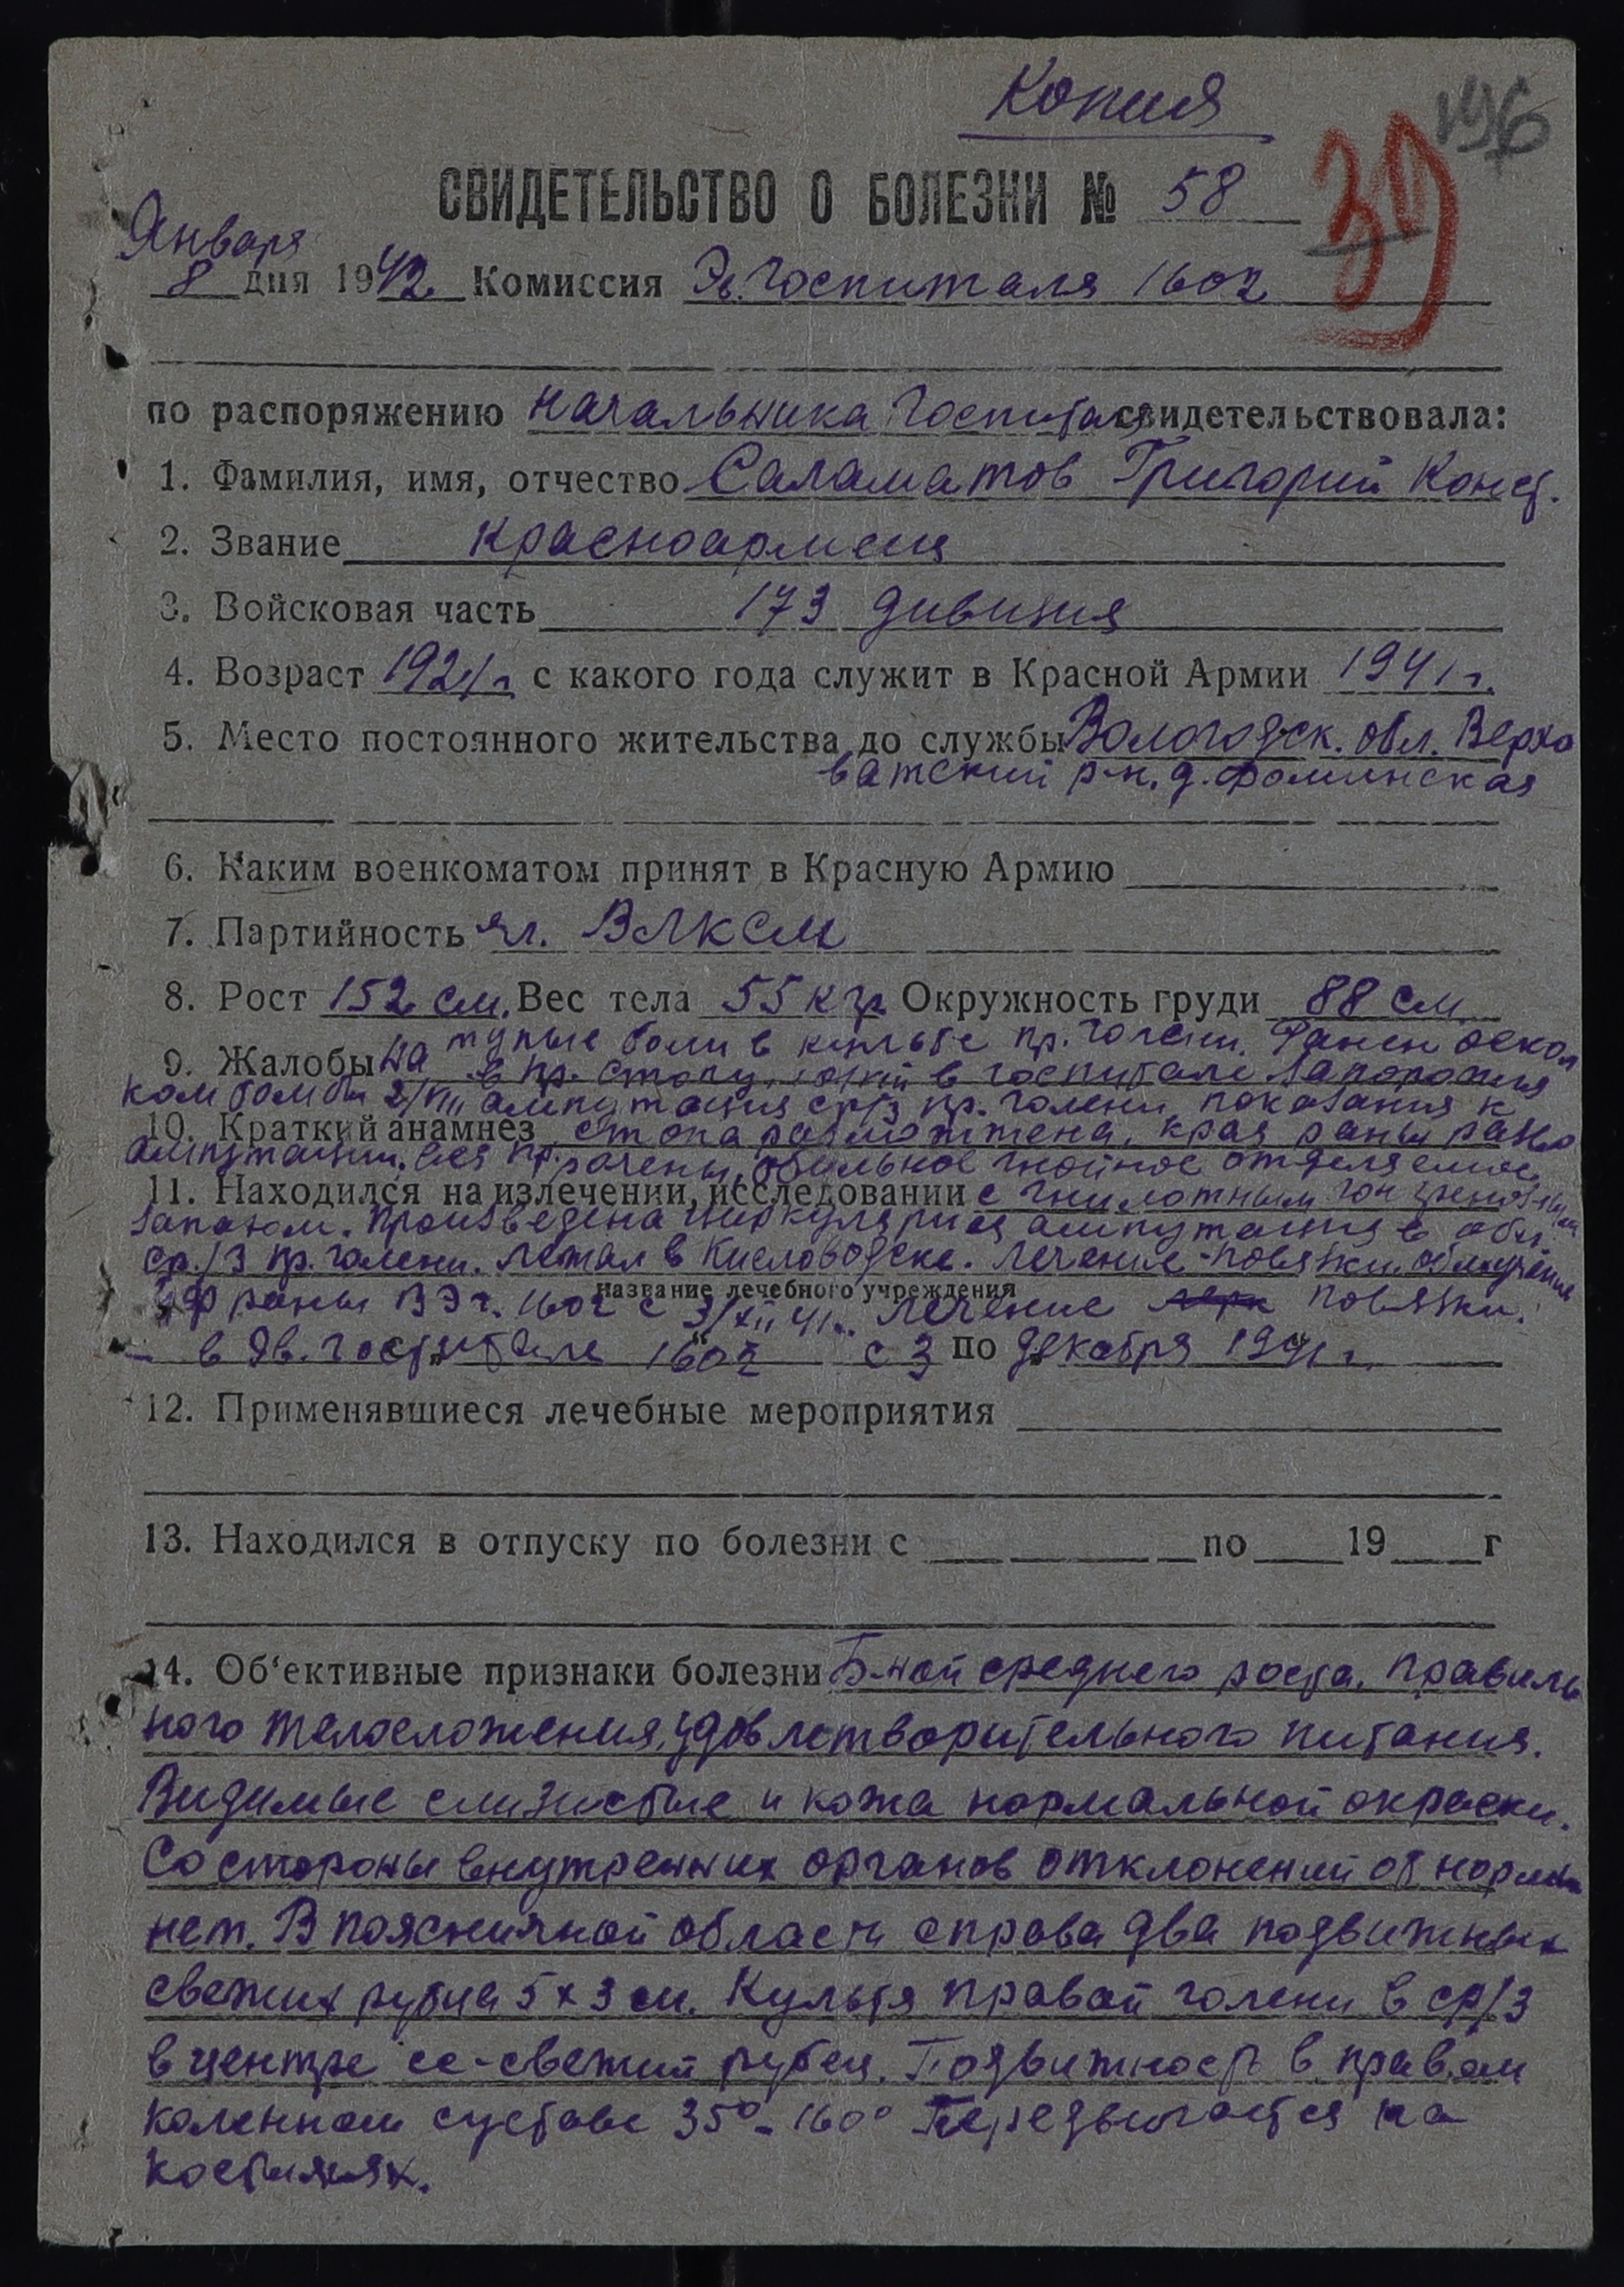 Копия
196
39
СВИДЕТЕЛЬСТВО О БОЛЕЗНИ № 58
Января
8 дня 1942 Комиссия Эв. Госпиталя 1602
по распоряжению начальника госпиталя свидетельствовала:
1. Фамилия, имя, отчество Саламатов Григорий Конст.
2. Звание красноармеец
3. Войсковая часть 173 дивизия
4. Возраст 1921 г с какого года служит в Красной Армии 1941 г.
5. Место постоянного жительства до службы Вологодск. обл. Верхо
ватский р-н. д. Фоминская
6. Каким военкоматом принят в Красную Армию
7. Партийность чл. ВЛКСМ
8. Рост 152 см. Вес тела 55 кгр Окружность груди 88 см
тупые боли в культе пр. голени. Ранен оскол
9. Жалобы на в пр. стопу, в госпитале Запорожья
ком бомбы 2/VIII ампутация ср/з пр. голени, показания к
10. Краткий анамнез стопа размозжена, края раны
ампутации. Вся обильное гнойное отделяемое
11. Находился на излечении, исследовании с гнилостным
запахом. Произведена циркулярная ампутация в обл.
ср./3 пр. голени. Лежал в Кисловодске. Лечение - повязки, облучение
название лечебного учреждения
раны В Эг. 1602 с 3/XII 41 г. лечение повязки.
в Эв. госпитале 1602 с 3 по декабря 1941 г.
12. Применявшиеся лечебные мероприятия
13. Находился в отпуску по болезни с по 19 г
14. Об‘ективные признаки болезни Б-ной среднего роста, правиль
ного телосложения, удовлетворительного питания.
Видимые слизистые и кожа нормальной окраски.
Со стороны внутренних органов отклонений от нормы
нет. В поясничной области справа два подвижных
свежих рубца 5 х 3 см. Культя правой голени в ср/3
в центре ее - свежий рубец. Подвижность в правом
коленном суставе 35° - 160° Передвигается на
костылях.